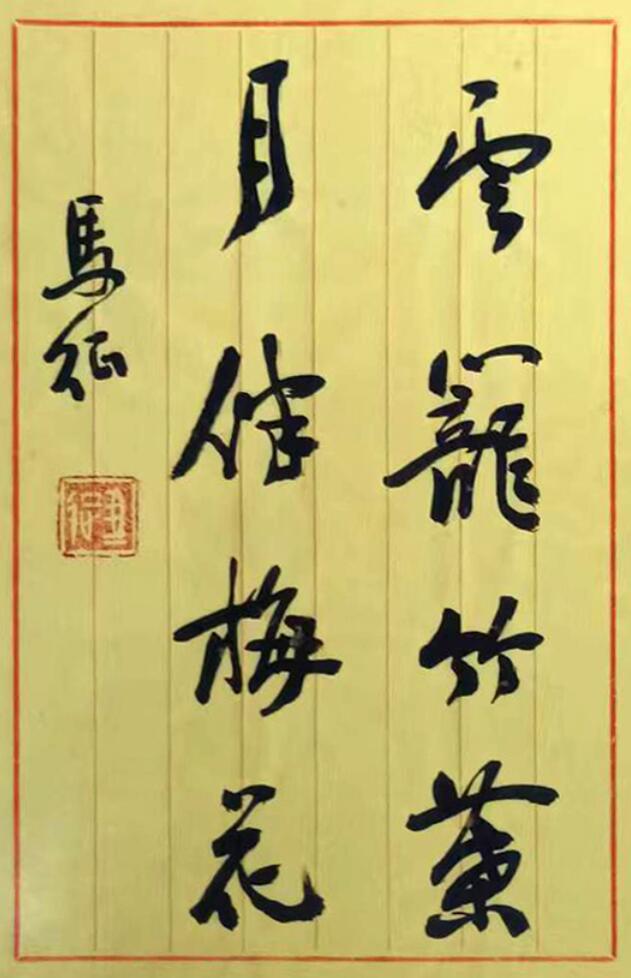 雲籠竹葉
月伴梅花
馬征
馬征